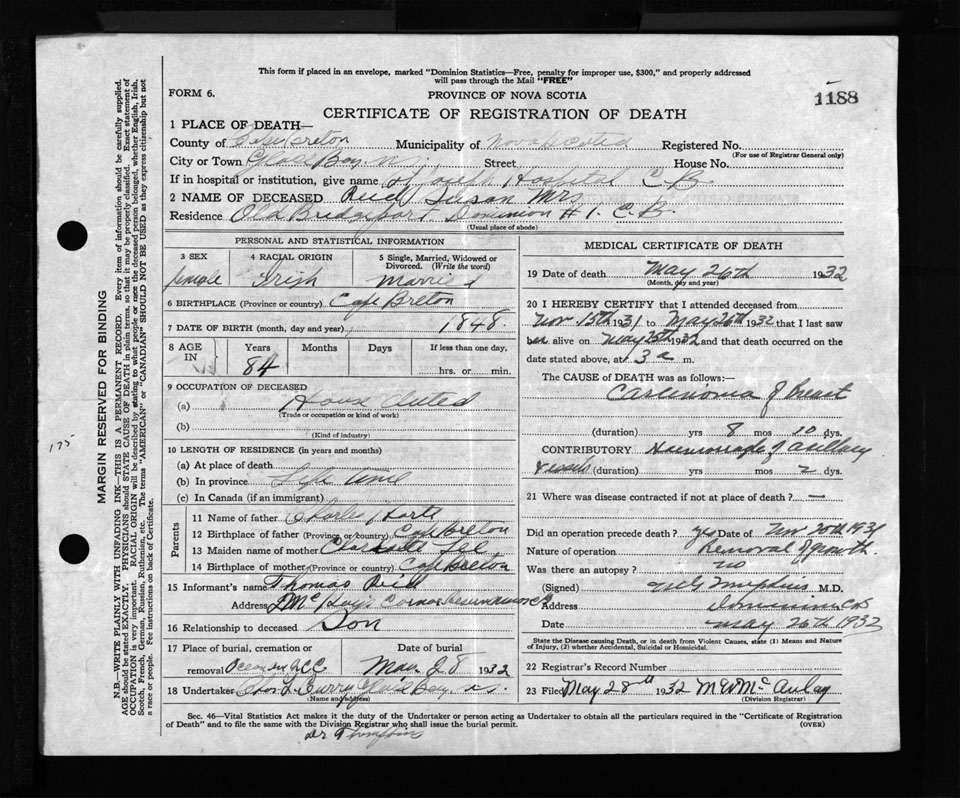 This form if placed in an envelope, marked "Dominion Statistics—Free, penalty for improper use, $300," and properly addressed
will pass through the Mail "FREE"
FORM 6.
PROVINCE OF NOVA SCOTIA
1188
CERTIFICATE OF REGISTRATION OF DEATH
1 PLACE OF DEATH—
County of Cape Breton Municipality of Nova Scotia Registered No.
(For use of Registrar General only)
City or Town Glace Bay Street House No.
If in hospital or institution, give name of St Joseph Hospital C B
2 NAME OF DECEASED Susan Mrs
Residence Old Bridgeport Dominion # 1. C. B.
(Usual place of abode)
PERSONAL AND STATISTICAL INFORMATION
3 SEX 4 RACIAL ORIGIN 5 Single, Married, Widowed or
Divorced. (Write the word)
female Irish Married
6 BIRTHPLACE (Province or country) Cape Breton
7 DATE OF BIRTH (month, day and year) 1848.
8 AGE Years Months Days If less than one day,
IN 84 hrs. or min.
9 OCCUPATION OF DECEASED
(a) House Duties
(Trade or occupation or kind of work)
(b)
(Kind of industry)
10 LENGTH OF RESIDENCE (in years and months)
(a) At place of death
(b) In province Life time
(c) In Canada (if an immigrant)
Parents
11 Name of father Charles
12 Birthplace of father (Province or country) Cape Breton
13 Maiden name of mother
14 Birthplace of mother (Province or country) Cape Breton
15 Informant's name Thomas
Address Corner Reserve
16 Relationship to deceased Son
17 Place of burial, cremation or Date of burial
removal May 28 1932
18 Undertaker Curry Glace Bay
Name and address
MEDICAL CERTIFICATE OF DEATH
19 Date of death May 26th 1932
(Month, day and year)
20 I HEREBY CERTIFY that I attended deceased from
Nov 15th 1931 to May 26th 1932 that I last saw
her alive on May 25th 1932 and that death occurred on the
date stated above, at 3 a m.
The CAUSE of DEATH was as follows:—
Carcinoma of Breast
(duration) yrs 8 mos 10 dys.
CONTRIBUTORY Hemorrhage of axillary
vessels (duration) yrs mos 2 dys.
21 Where was disease contracted if not at place of death? —
Did an operation precede death? yes Date of Nov 20th 1931
Nature of operation Removal of growth.
Was there an autopsy? no
(Signed) M.D.
Address Dominion C B
Date May 26th 1932
State the Disease causing Death, or in death from Violent Causes, state (1) Means and Nature
of Injury, (2) whether Accidental, Suicidal or Homicidal.
22 Registrar's Record Number
23 Filed May 28th 1932 McAulay
(Division Registrar)
Sec. 46—Vital Statistics Act makes it the duty of the Undertaker or person acting as Undertaker to obtain all the particulars required in the "Certificate of Registration
of Death" and to file the same with the Division Registrar who shall issue the burial permit. (OVER)
MARGIN RESERVED FOR BINDING
N.B.—WRITE PLAINLY WITH UNFADING INK—THIS IS A PERMANENT RECORD. Every item of information should be carefully supplied.
AGE should be stated EXACTLY. PHYSICIANS should STATE CAUSE OF DEATH in plain terms, so that it may be properly classified. Exact statement of
OCCUPATION is very important. RACIAL ORIGIN will be described by stating to what people or race the deceased person belonged, whether English, Irish,
Scotch, French, German, Russian, Ruthenian, etc. The terms "AMERICAN" or "CANADIAN" SHOULD NOT BE USED as they express citizenship but not
a race or people. Fee instructions on back of Certificate.